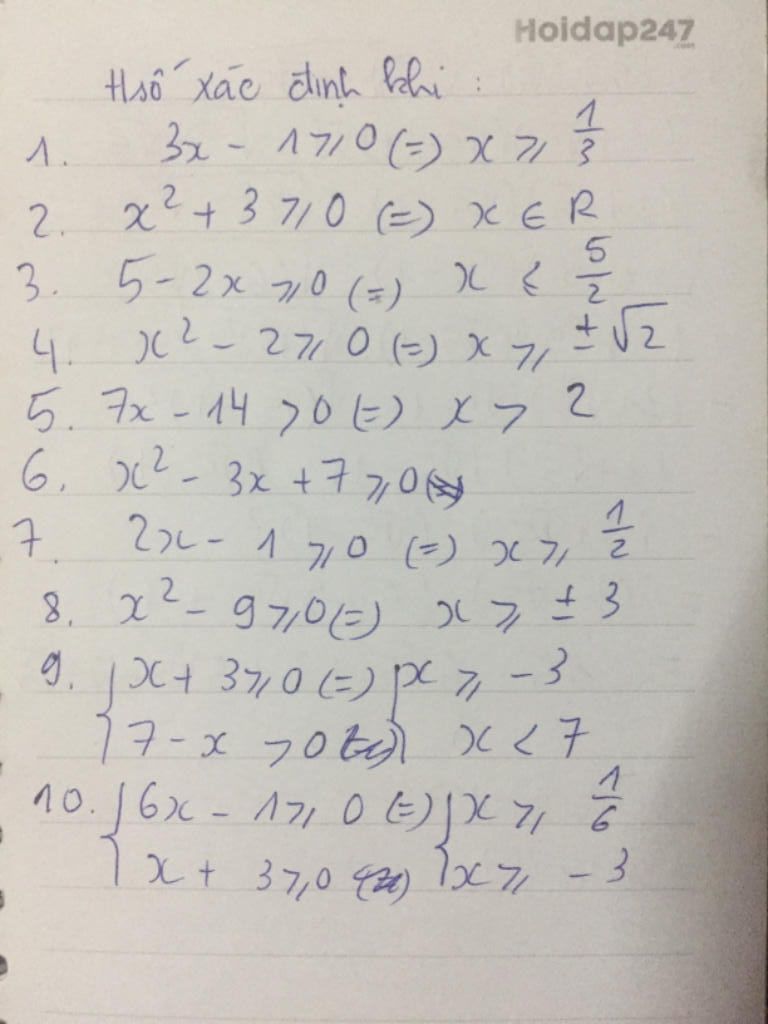 Hoidap247
.com
Hsố xác định khi :
1. 3x - 1 ⩾ 0 (=) x ⩾ 1/3
2. x² + 3 ⩾ 0 (=) x ∈ R
3. 5 - 2x ⩾ 0 (=) x ⩽ 5/2
4. x² - 2 ⩾ 0 (=) x ⩾ ± √2
5. 7x - 14 > 0 (=) x > 2
6. x² - 3x + 7 ⩾ 0
7. 2x - 1 ⩾ 0 (=) x ⩾ 1/2
8. x² - 9 ⩾ 0 (=) x ⩾ ± 3
9. { x + 3 ⩾ 0 (=) { x ⩾ - 3
7 - x > 0 x < 7
10. { 6x - 1 ⩾ 0 (=) { x ⩾ 1/6
x + 3 ⩾ 0 x ⩾ - 3